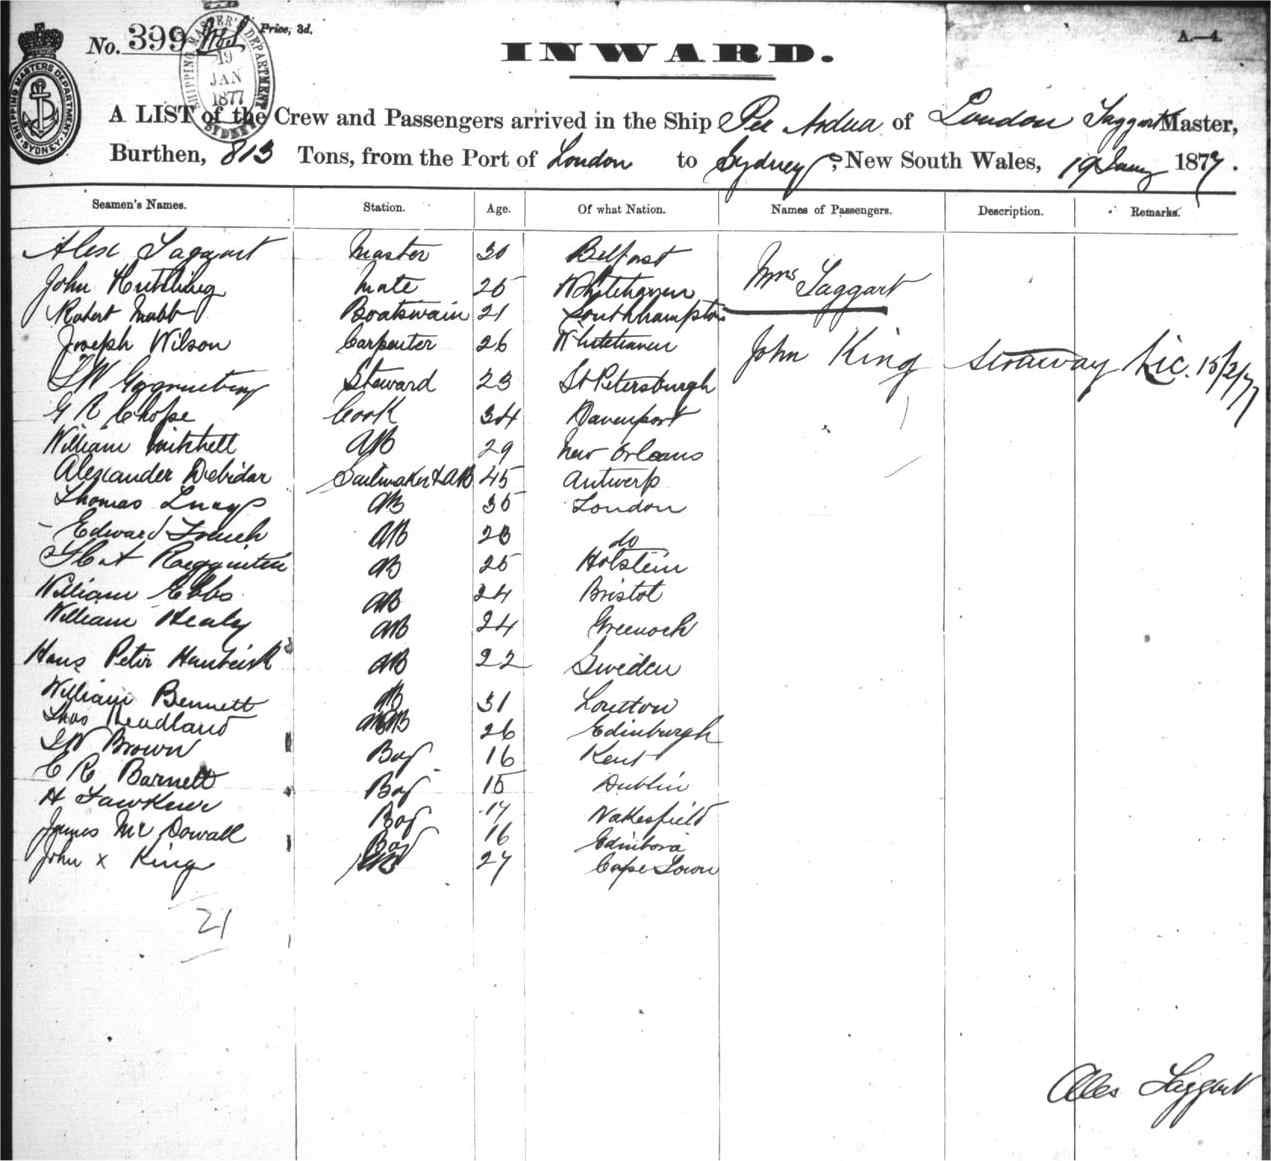 No. 399 Price, 3d.
SHIPPING MASTER'S DEPARTMENT SYDNEY
19 JAN 1877
SHIPPING MASTERS DEPARTMENT SYDNEY
A.—4.
INWARD.
A LIST of the Crew and Passengers arrived in the Ship Per Ardua of London Taggart Master,
Burthen, 813 Tons, from the Port of London to Sydney, New South Wales, 19 Jany 1877.
Seamen's Names. Station. Age. Of what Nation. Names of Passengers. Description. Remarks.
Alex Taggart Master 30 Belfast Mrs Taggart
John Mate 25 Whitehaven
Robert Mabb Boatswain 21 Southhampton
Joseph Wilson Carpenter 26 Whitehaven John King Stowaway Lic. 15/2/77
Steward 23 St Petersburgh
G R Chope Cook 34 Davenport
William Mitchell AB 29 New Orleans
Alexander Debidar Sailmaker & AB 45 Antwerp
Thomas AB 35 London
Edward French AB 23 do
AB 25 Holstein
William Ebbs AB 24 Bristol
William Healy AB 24 Greenock
Hans Peter AB 22 Sweden
William Bennett AB 31 London
Thos Headland AB 26 Edinburgh
Brown Boy 16 Kent
C R Barnett Boy 15 Dublin
H Fawkner Boy 17 Wakesfield
James Mc Dowall Boy 16 Edinboro
John x King AB 27 Cape Town
21
Alex Taggart